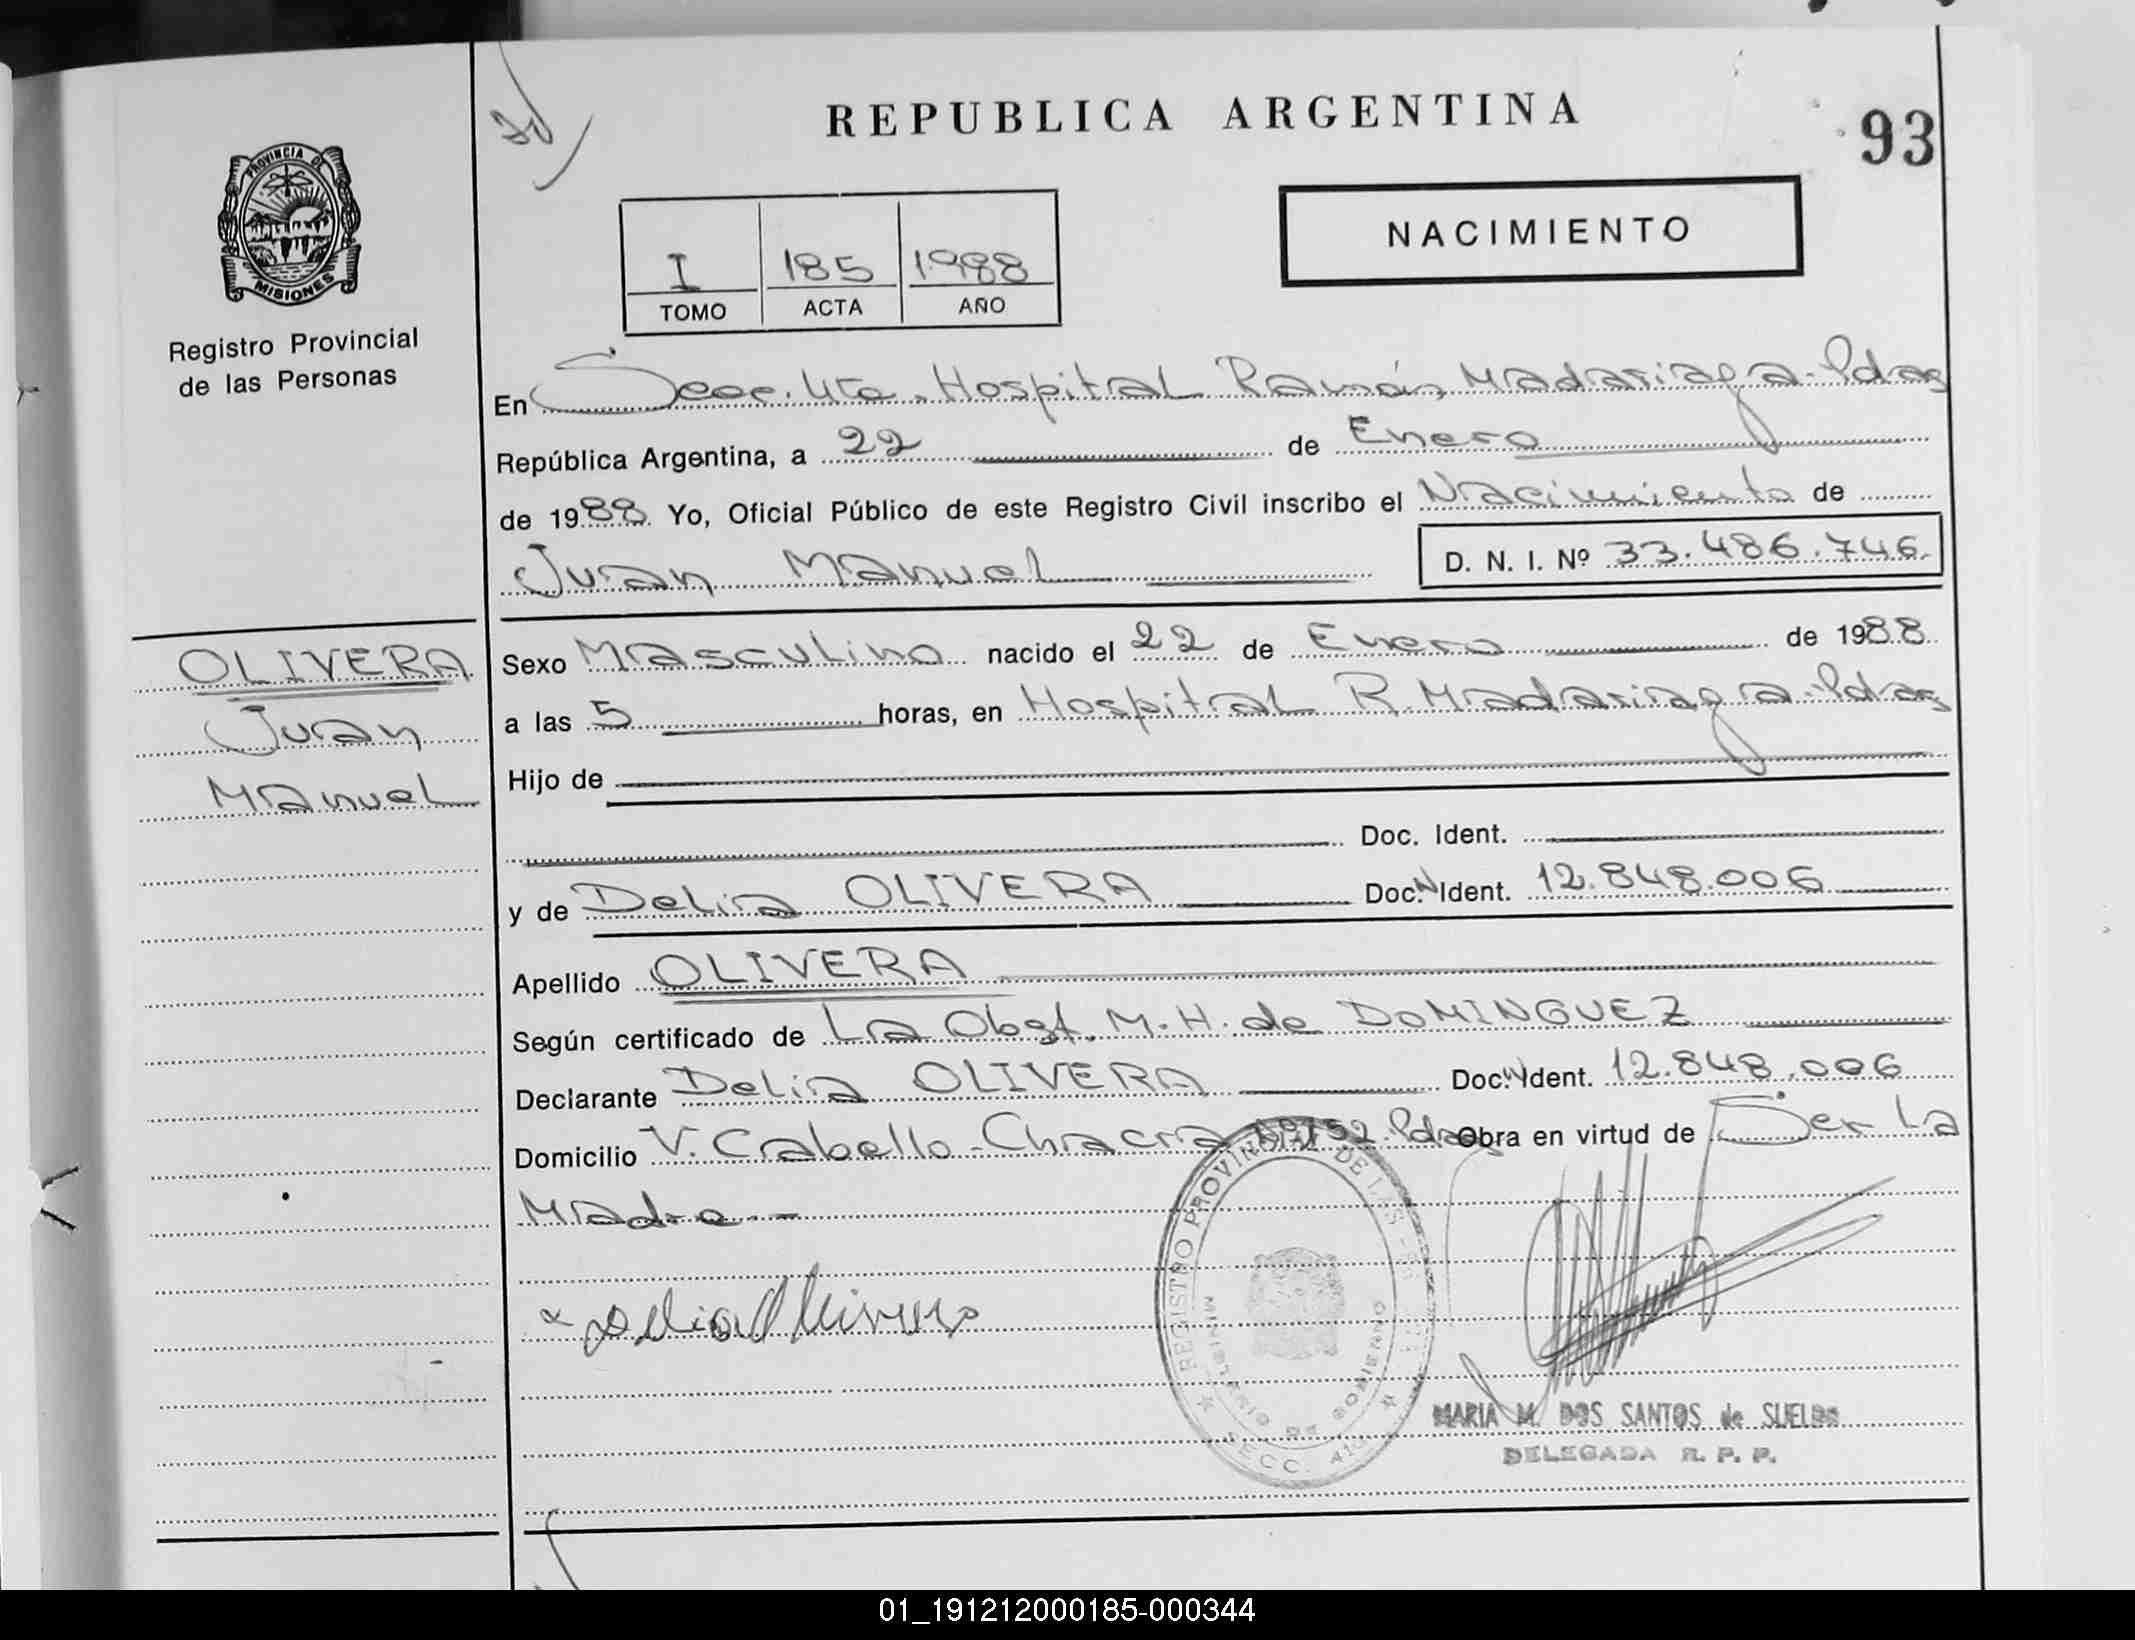 REPUBLICA ARGENTINA
93
PROVINCIA DE
MISIONES
Registro Provincial
de las Personas
NACIMIENTO
I 185 1988
TOMO ACTA AÑO
En Secc. 4ta. Hospital Ramón Madariaga-Pdas
República Argentina, a 22 de Enero
de 1988 Yo, Oficial Público de este Registro Civil inscribo el Nacimiento de
Juan Manuel
D. N. I. Nº 33.486.746
OLIVERA
Juan
Manuel
Sexo Masculino nacido el 22 de Enero de 1988
a las 5 horas, en Hospital R. Madariaga-Pdas
Hijo de
Doc. Ident.
y de Delia OLIVERA Doc. N Ident. 12.848.006
Apellido OLIVERA
Según certificado de La Obst. M. H. de DOMINGUEZ
Declarante Delia OLIVERA Doc. N Ident. 12.848.006
Domicilio V. Cabello-Chacra Nº 152 Pdas Obra en virtud de Ser La
Madre.-
x Delia Olivera
REGISTRO PROVINCIAL DE LAS
MINISTERIO DE GOBIERNO
SECC. 4ta
MARIA M. DOS SANTOS de SUELDO
DELEGADA R. P. P.
01_191212000185-000344